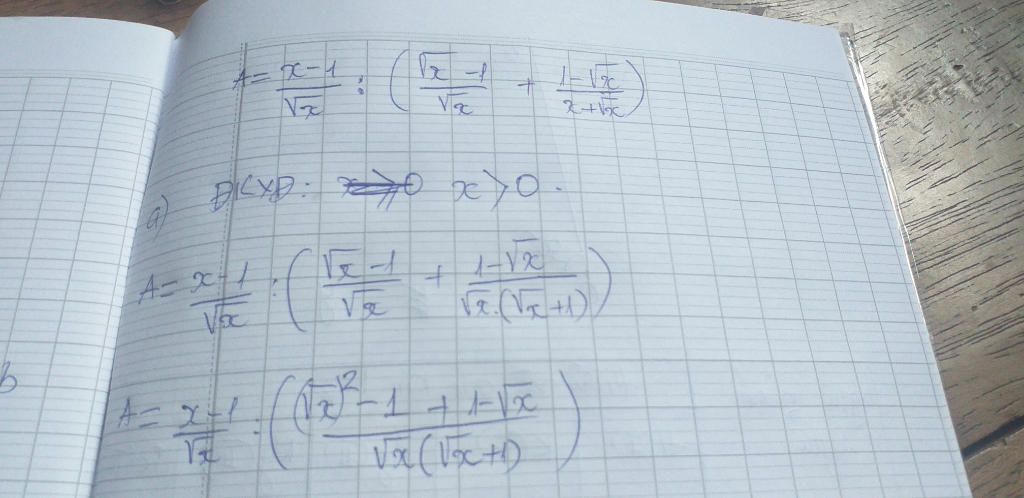 A = \frac{x-1}{\sqrt{x}} : \left( \frac{\sqrt{x}-1}{\sqrt{x}} + \frac{1-\sqrt{x}}{x+\sqrt{x}} \right)
a) ĐKXĐ: x ⩾ 0 x > 0.
A = \frac{x-1}{\sqrt{x}} : \left( \frac{\sqrt{x}-1}{\sqrt{x}} + \frac{1-\sqrt{x}}{\sqrt{x}.(\sqrt{x}+1)} \right)
A = \frac{x-1}{\sqrt{x}} : \left( \frac{(\sqrt{x})^2 - 1 + 1-\sqrt{x}}{\sqrt{x}(\sqrt{x}+1)} \right)
b